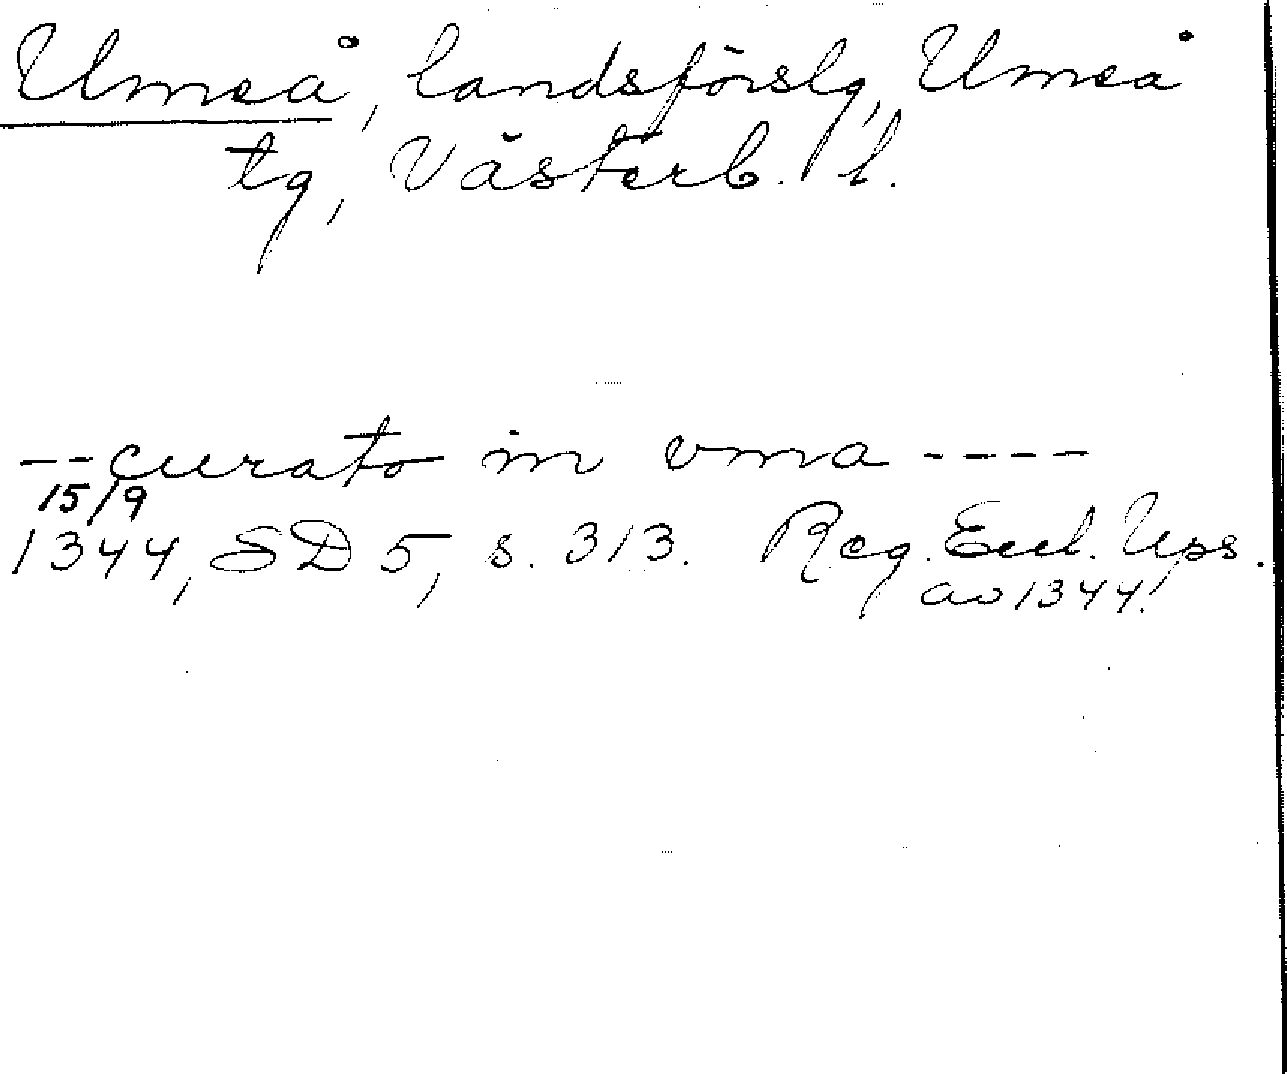 Umeå, landsförslg, Umeå
tg, Västerb. l.
--curato in vma ----
15/9
1344, SD 5, s. 313. Reg. Eccl. Ups.
av 1344.